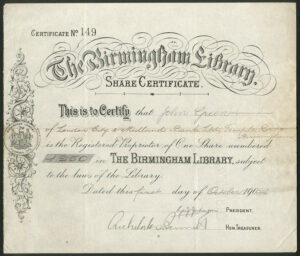 CERTIFICATE No 149
The Birmingham Library.
SHARE CERTIFICATE.
This is to Certify that John
of London City & Midland Bank
is the Registered Proprietor of One Share numbered
in THE BIRMINGHAM LIBRARY, subject
to the laws of the Library.
Dated this first day of October
PRESIDENT.
HON. TREASURER.